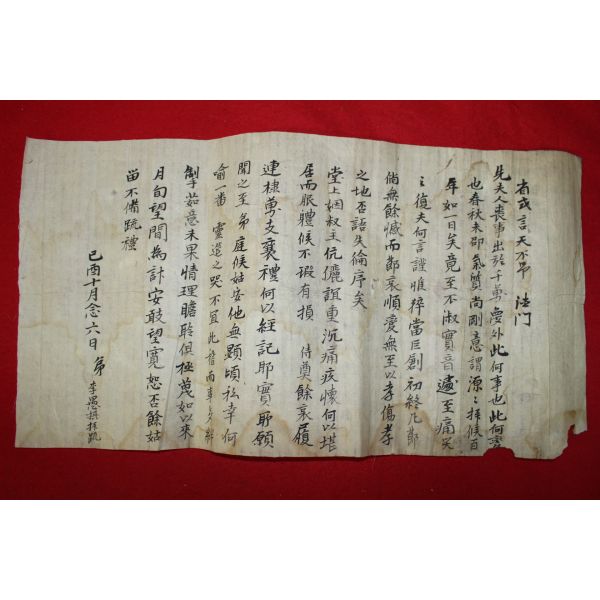 有我言天不弔 法門
先夫人喪事出於千萬慮外此何事也此何變
也春秋未卲氣質尚剛意謂源〻拜候百
年如一日矣竟至不淑實音遽至痛矣
〻復夫何言謹惟猝當巨創初終凡節
倘無餘憾而節哀順愛無至以孝傷孝
之地否語失倫序矣
堂上姻叔主伉儷誼重沉痛疚懷何以堪
居而服體候不瑕有損 侍奠餘哀履
連棣萬支襄禮何以經記耶實耶願
聞之至 弟 庭候姑安他無顯頃私幸何
喻一番 靈筵之哭不宜此
制手茹意未果情理瞻聆俱極蔑如以來
月旬望間為計安敢望寬恕否餘姑
留不備疏禮
己酉十月念六日 弟 李愚 拜疏